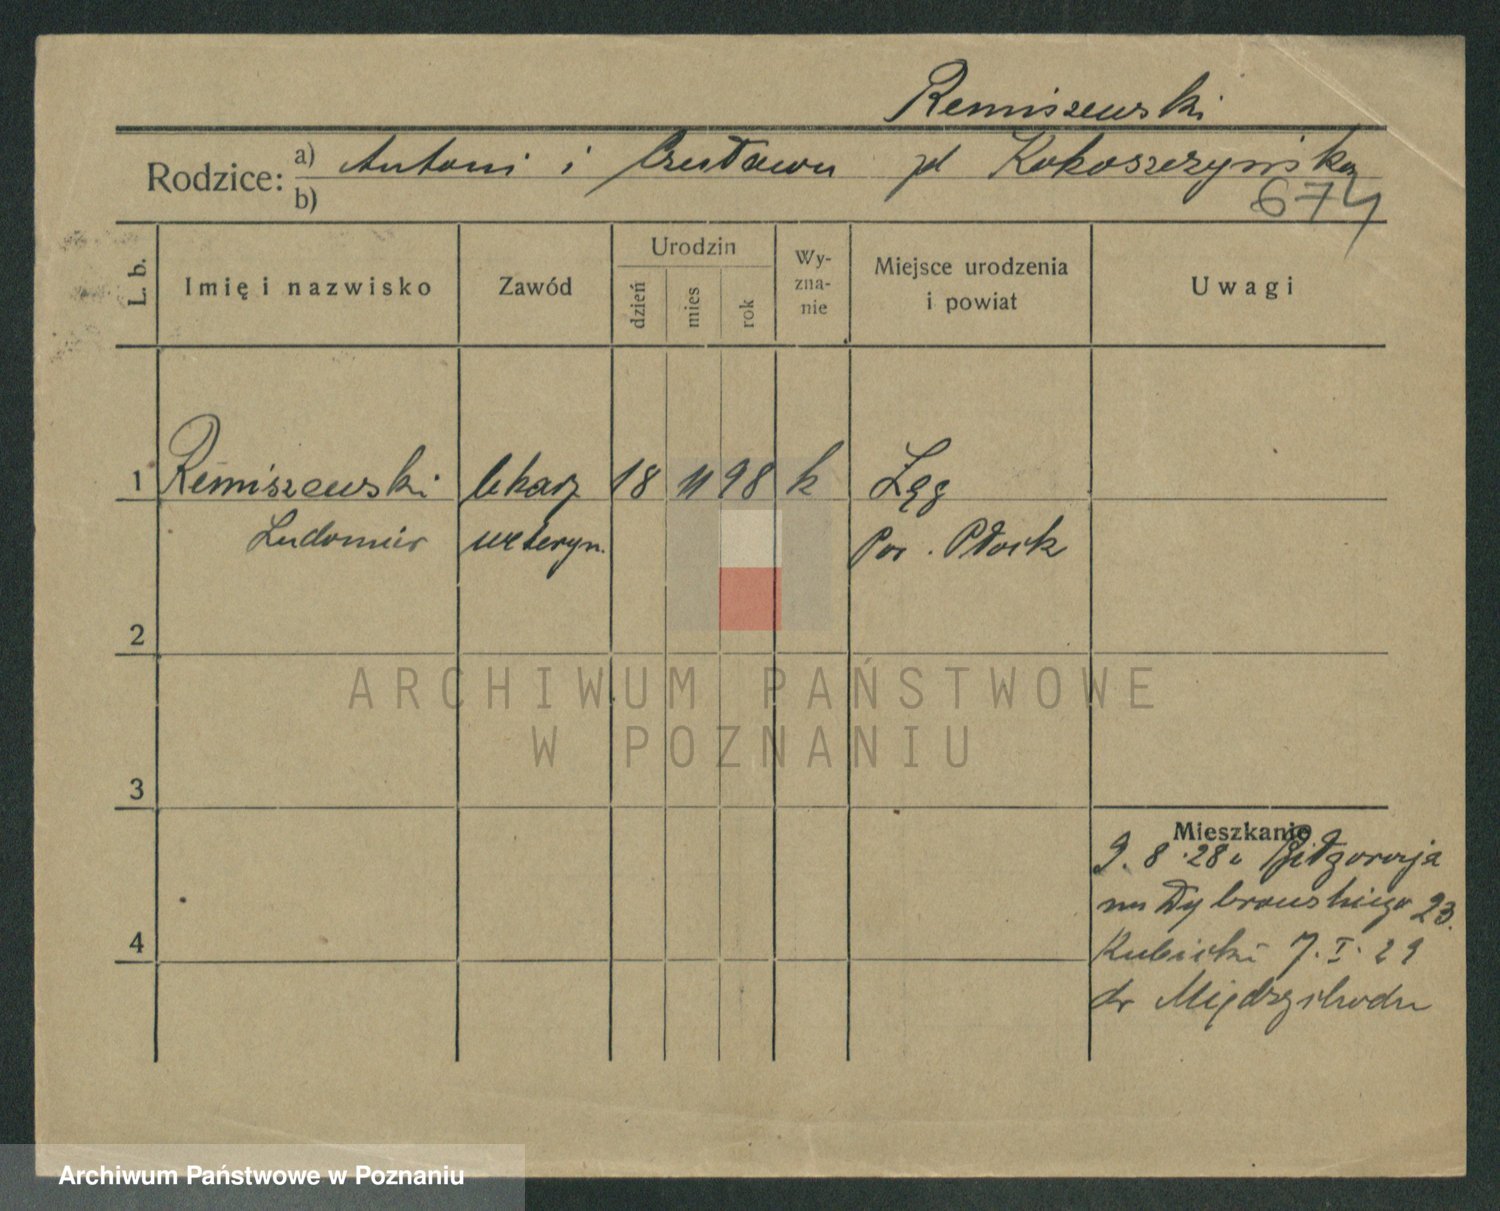 Remiszewski
Rodzice: a) Antoni i Czesława zd Kokoszczyńska
b)
674
L. b.
Imię i nazwisko
Zawód
Urodzin
dzień
mies
rok
Wy-
zna-
nie
Miejsce urodzenia
i powiat
Uwagi
1 Remiszewski lekarz 18 11 98 k Łęg
Ludomir weteryn. Pow. Płock
2
ARCHIWUM PAŃSTWOWE
W POZNANIU
3
4
Mieszkanie
9. 8. 28 z Biłgoraja
na Dąbrowskiego 23.
Kubicki 7. I. 29
do Międzychodu
Archiwum Państwowe w Poznaniu